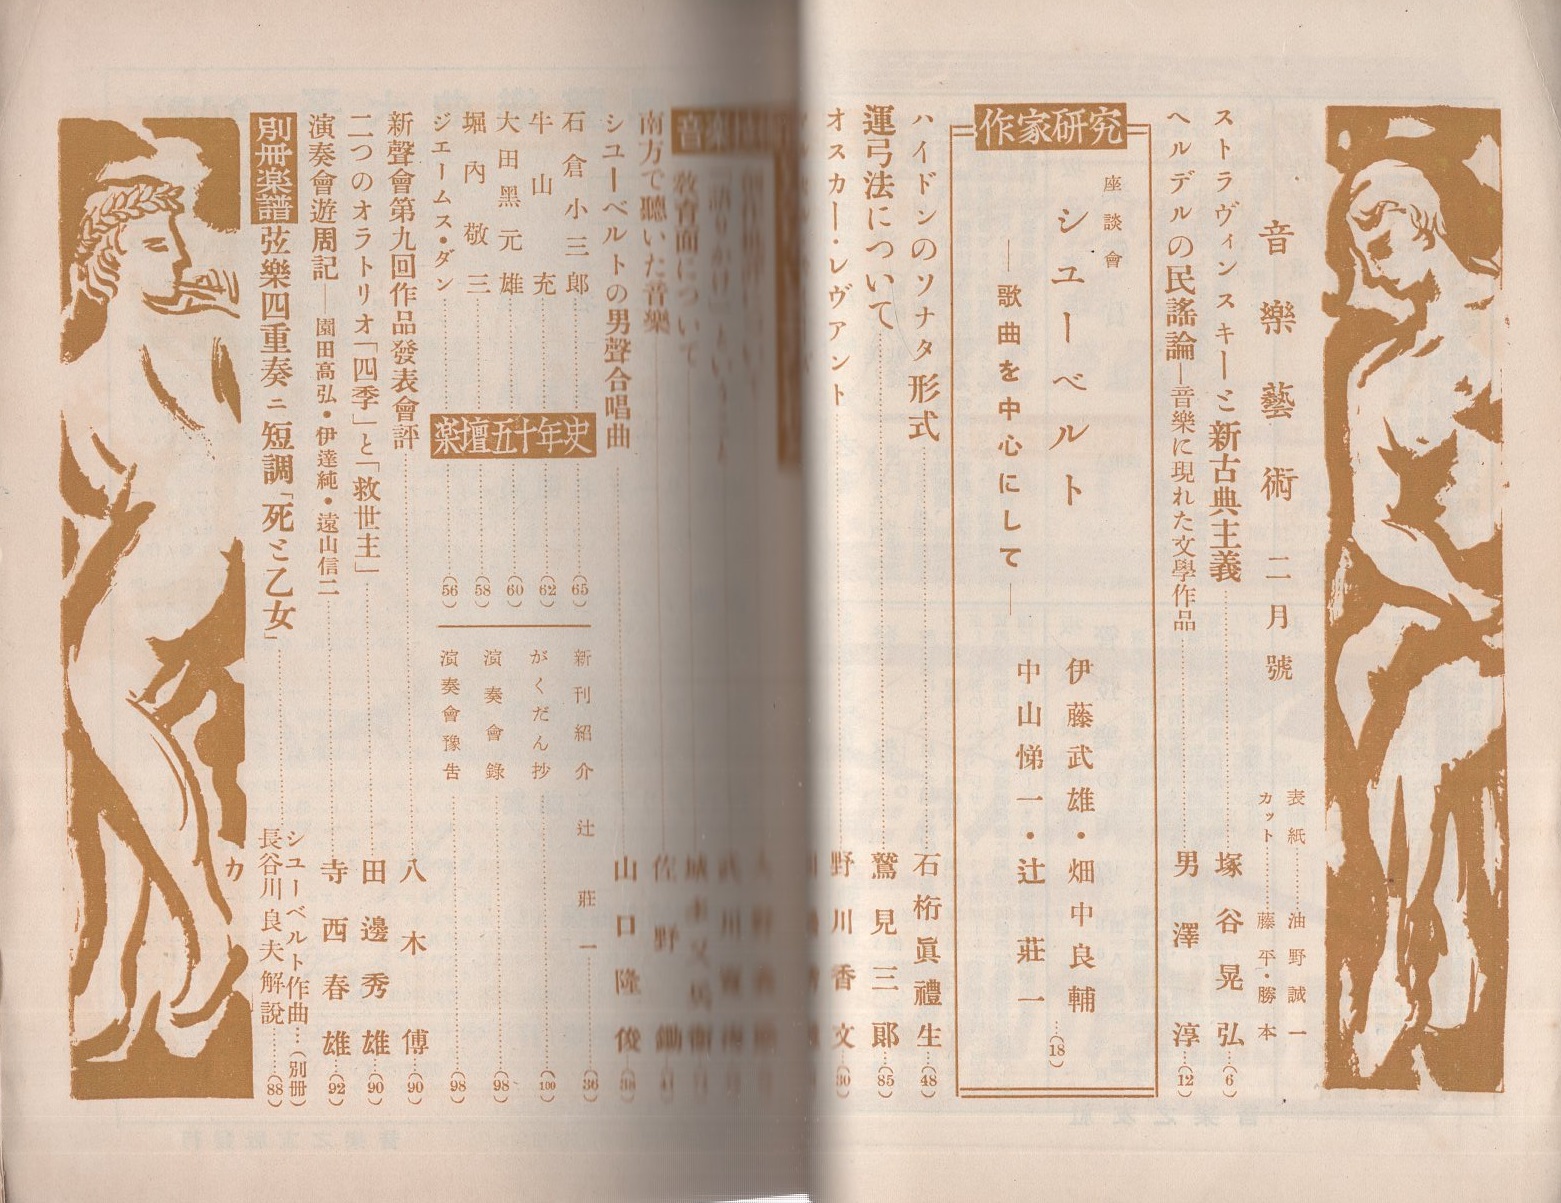 音樂藝術 二月號
表紙 油野誠一
カット 藤平・勝本
ストラヴィンスキーと新古典主義 塚谷晃弘 (6)
ヘルデルの民謠論―音樂に現れた文學作品 男澤淳 (12)
作家研究
座談會
シューベルト
―歌曲を中心にして―
伊藤武雄・畑中良輔
中山悌一・辻莊一 (18)
ハイドンのソナタ形式 石桁眞禮生 (48)
運弓法について 鷲見三郞 (85)
オスカー・レヴァント 野川香文 (30)
教育面について
南方で聽いた音樂 佐野鋤
シューベルトの男聲合唱曲 山口隆俊
楽壇五十年史
石倉小三郎 (65)
牛山充 (62)
大田黑元雄 (60)
堀內敬三 (58)
ジェームス・ダン (56)
新刊紹介 辻莊一 (36)
がくだん抄 (100)
演奏會錄 (98)
演奏會豫告 (98)
新聲會第九回作品發表會評 八木傅 (90)
二つのオラトリオ「四季」と「救世主」 田邊秀雄 (90)
演奏會遊周記―園田高弘・伊達純・遠山信二 寺西春雄 (92)
別冊楽譜
弦樂四重奏ニ短調「死と乙女」
シューベルト作曲…(別冊)
長谷川良夫解說 (88)
カ